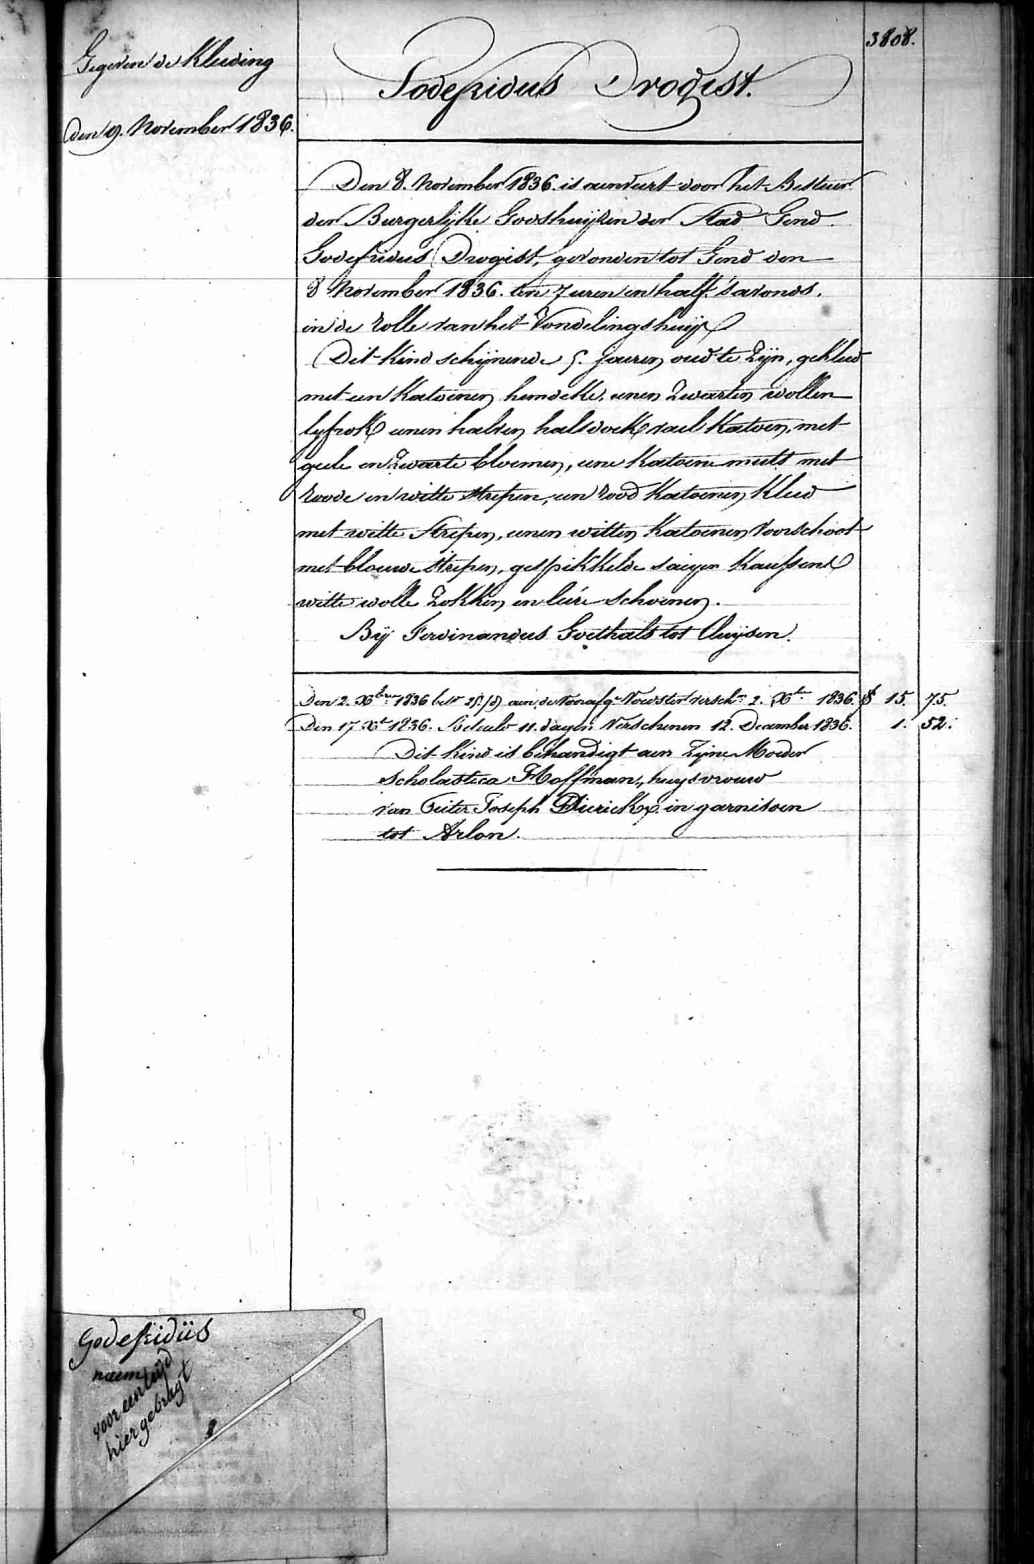 Gegeven de Kleeding
den 9. November 1836.
3808.
Godefridus Drogist.
Den 8. November 1836. is aenveert door het Bestuur
der Burgerlijke Godshuijzen der Stad Gend.
Godefridus Drogist, gevonden tot Gend den
8 November 1836. ten 7 uren en half 's avonds.
in de rolle van het Vondelingshuijs
Dit Kind schijnende 5. Jaeren oud te Zijn, gekleed
met een Katoenen hemdeke, eenen Zwarten wollen
lyfrok eenen halven halsdoek vael Katoen, met
geele en Zwarte bloemen, eene Katoene muts met
roode en witte strepen, een rood Katoenen Kleed
met witte Strepen, eenen witten Katoenen Voorschoot
met blauwe strepen, gespikkelde saeyen Kaussens
witte wolle Zokken en leêre Schoenen.
Bij Ferdinandus Goethals tot Cluijsen.
Den 2. Xbre 1836 aen de Voedster versch. 2. Xbr 1836. 15. 75.
Den 17 Xbr 1836. 11. dagen Verschenen 12. December 1836. 1. 52.
Dit Kind is behandigt aen Zijne Moeder
Scholastica Hoffman, huysvrouw
van Pieter Joseph Dierickx in garnisoen
tot Arlon.
Godefridüs
naem
voor een tijd
hier gebragt